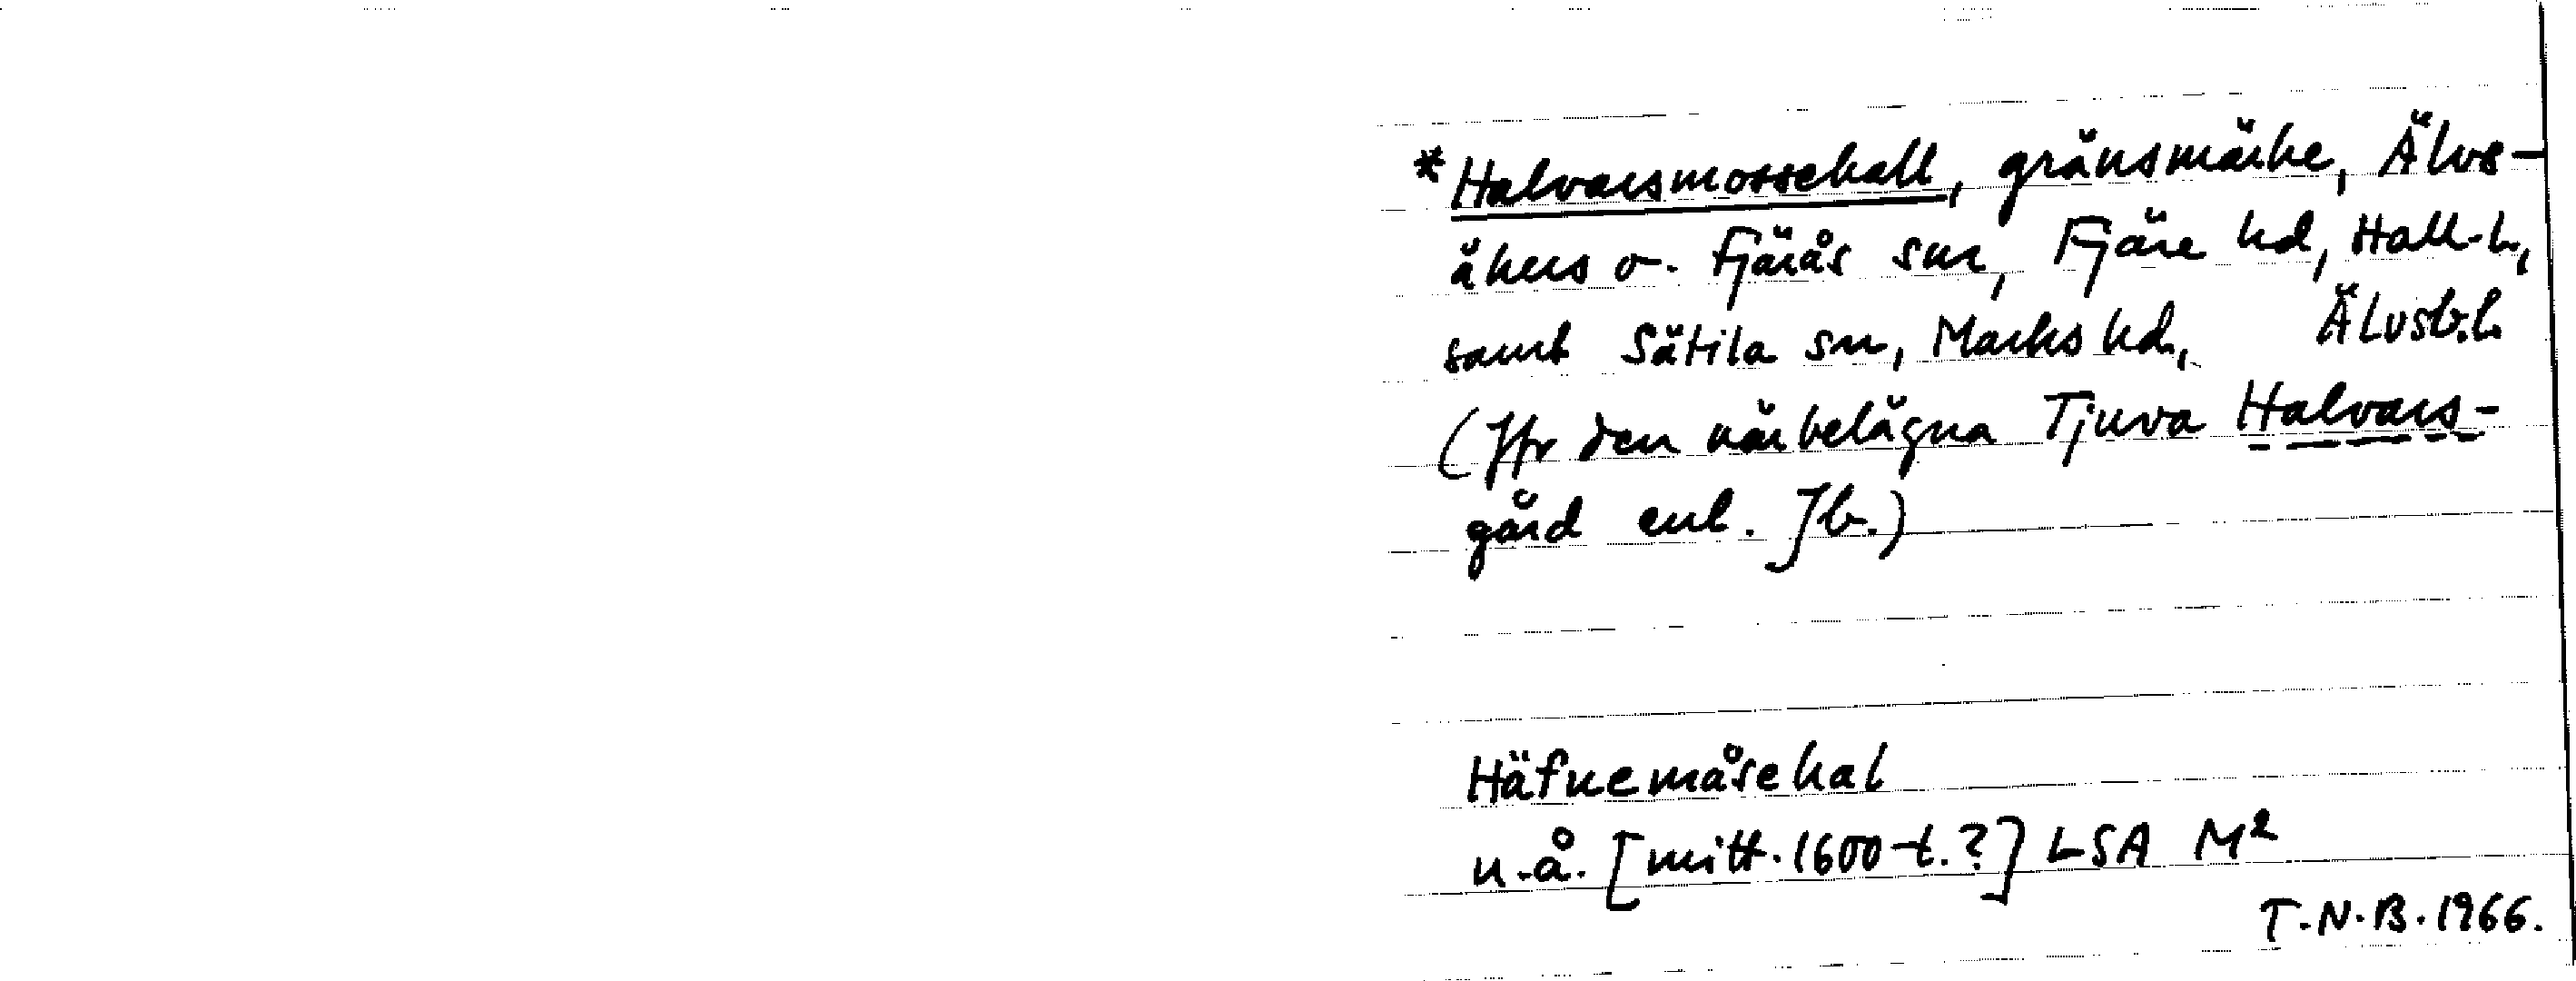 *Halvarsmossehall, gränsmärke, Älvs-
åkers o. Fjärås snr, Fjäre hd, Hall.l.,
samt Sätila sn, Marks hd, Älvsb.l.
(Jfr den närbelägna Tjuva Halvars-
gård enl. Jb.)
Häfnemåsehal
n.å. [mitt.1600-t.?] LSA M²
T.N.B.1966.